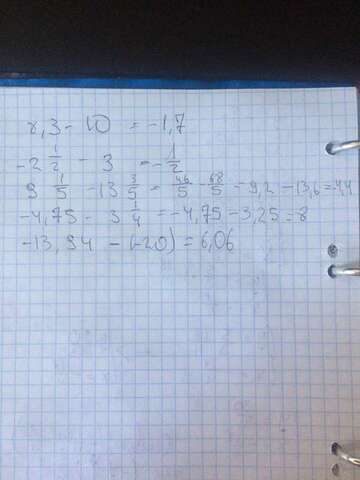 8,3 - 10 = -1,7
-2 1/2 - 3 = -1/2
9 1/5 - 13 3/5 = 46/5 - 68/5 = 9,2 - 13,6 = 4,4
-4,75 - 3 1/4 = -4,75 - 3,25 = 8
-13,94 - (-20) = 6,06